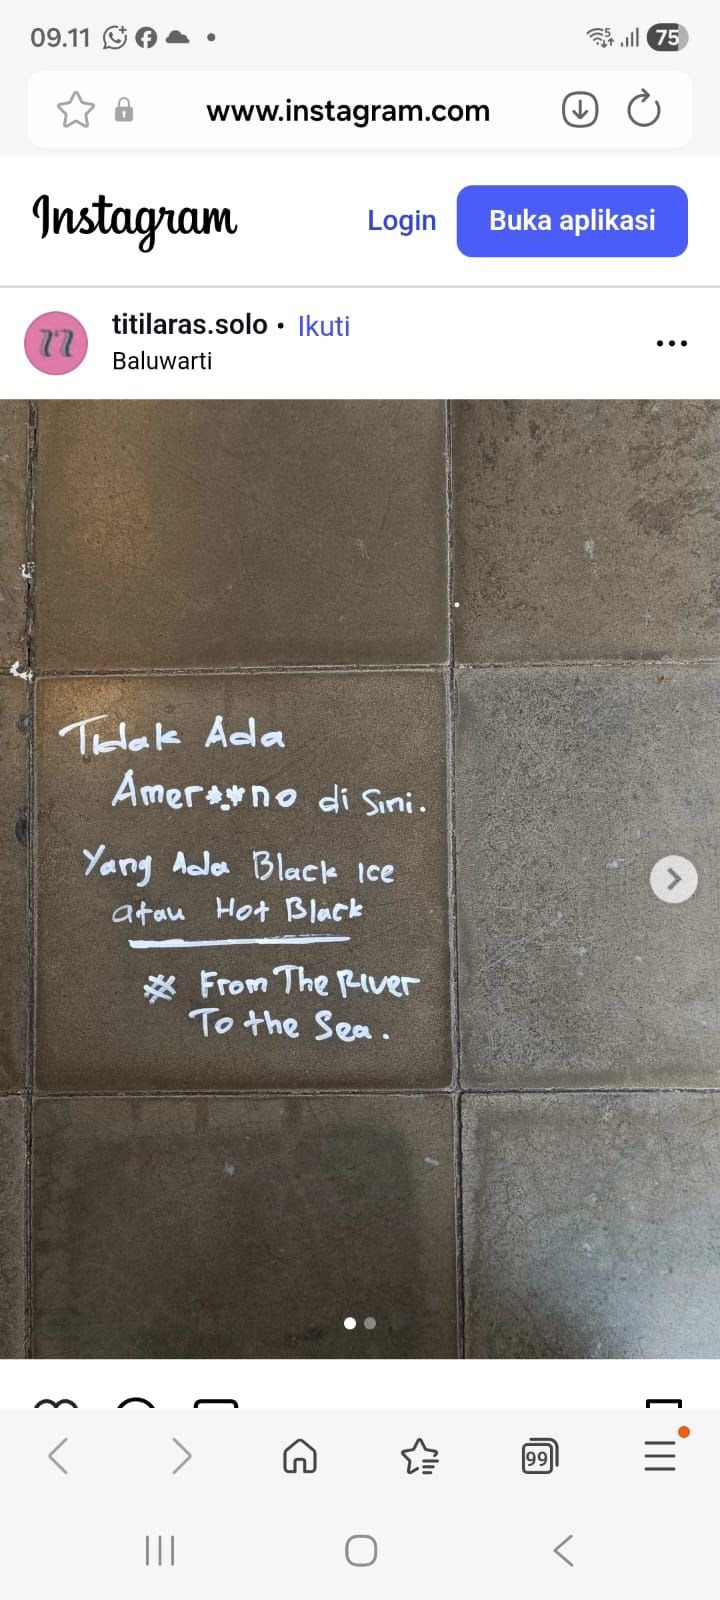 09.11
75
www.instagram.com
Instagram
Login
Buka aplikasi
titilaras.solo • Ikuti
Baluwarti
Tidak Ada
Amer**no di Sini.
Yang Ada Black Ice
atau Hot Black
# From The River
To the Sea.
99